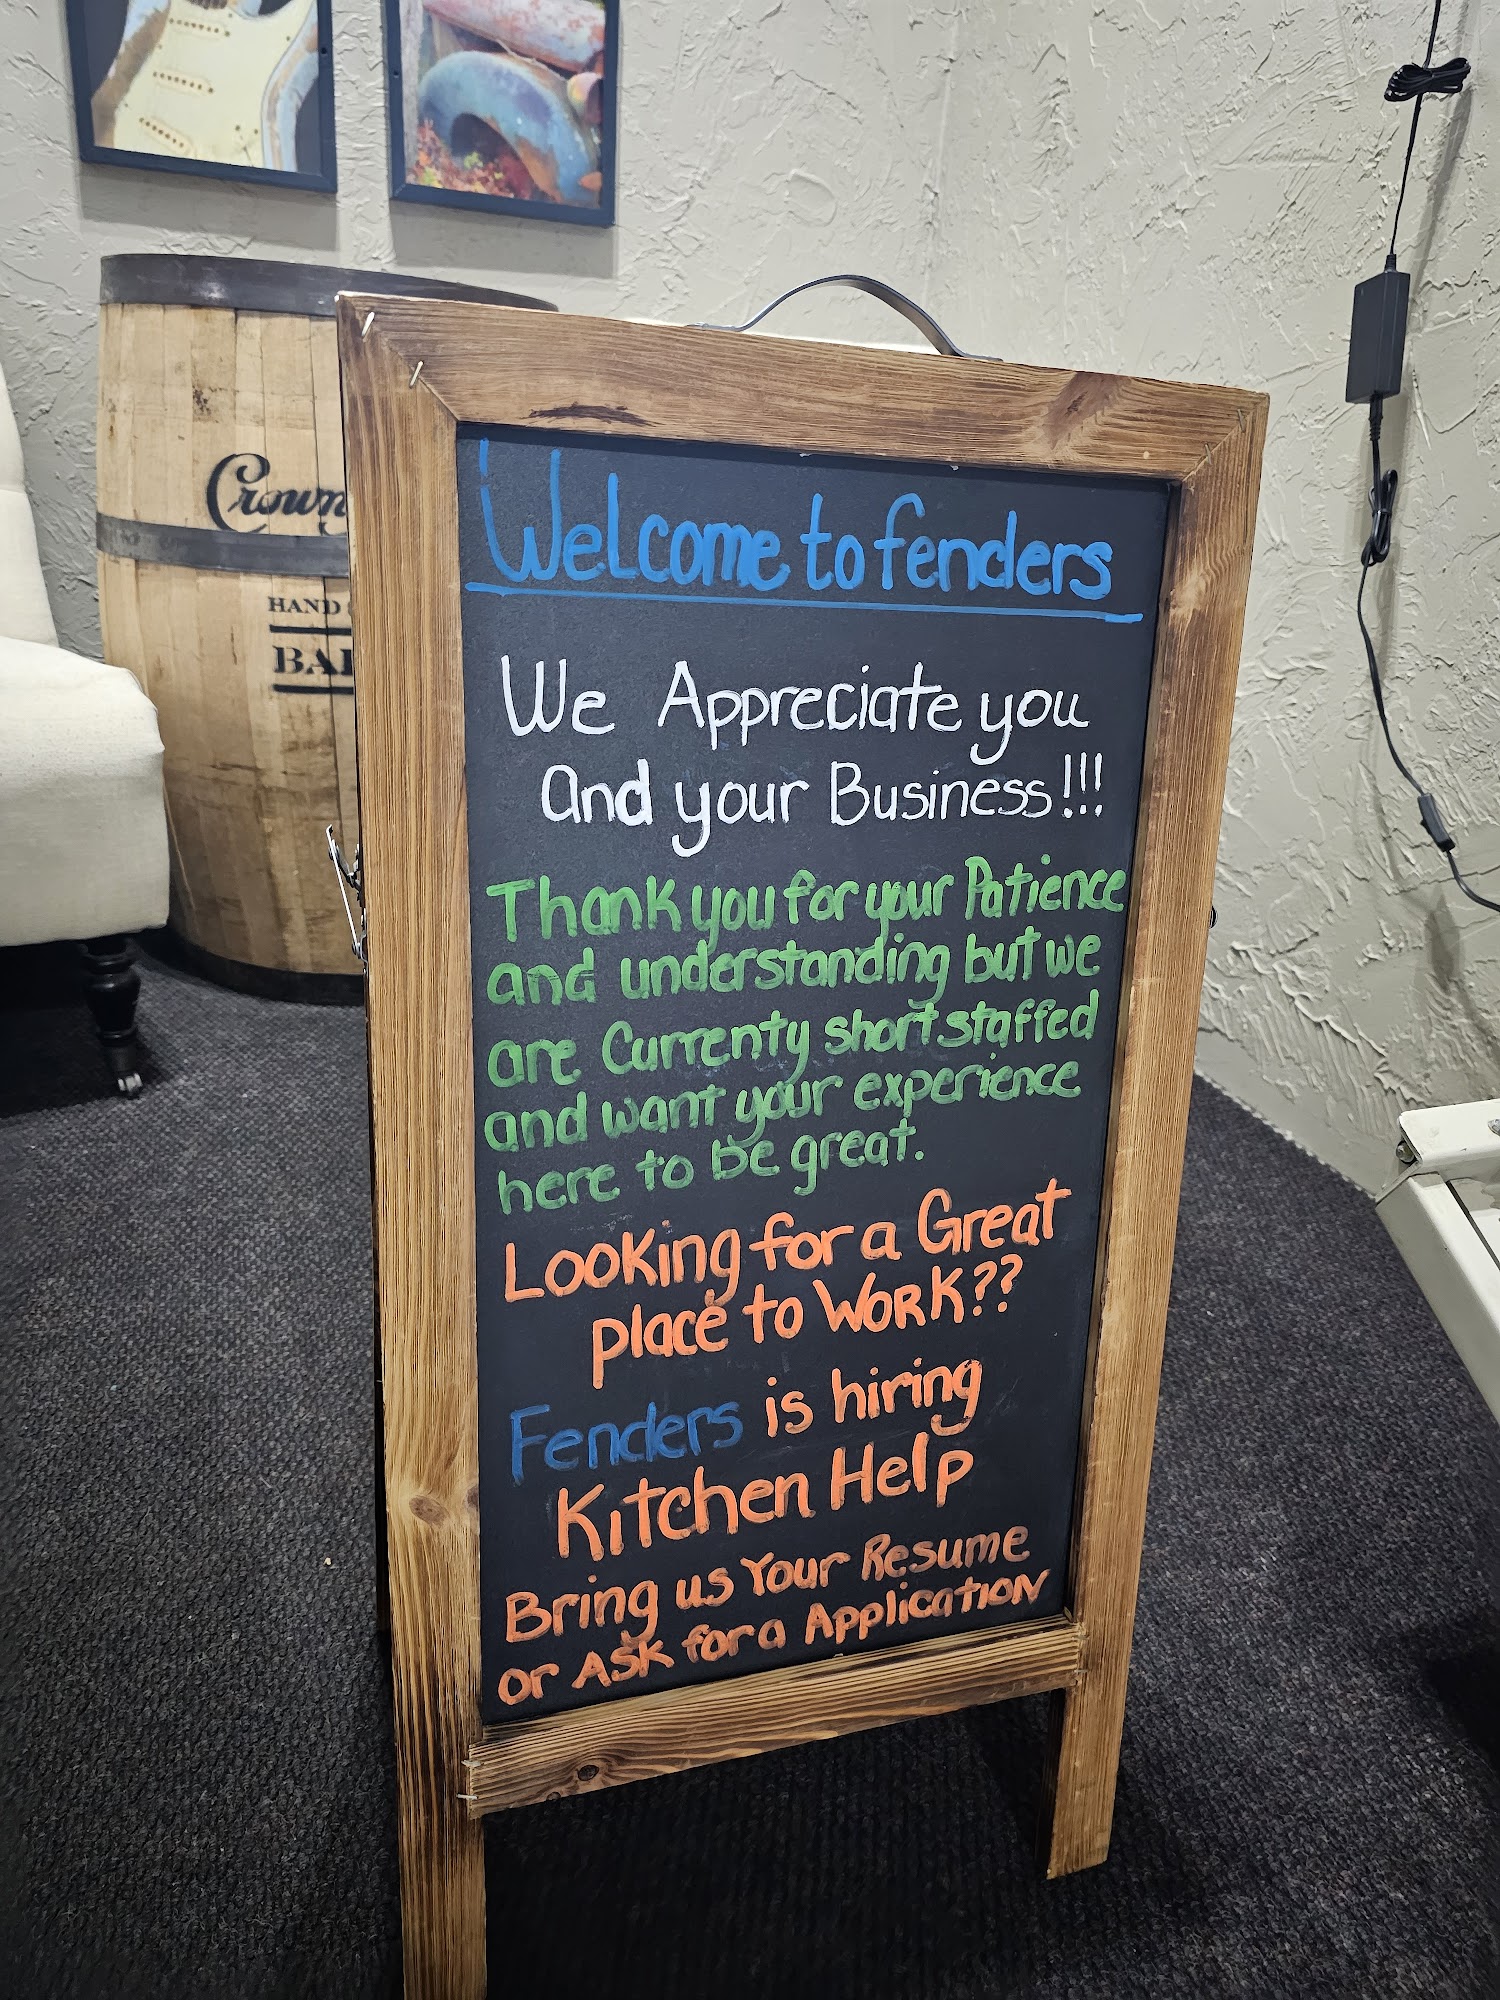 Crown
HAND
Welcome to fenders
We Appreciate you
And your Business!!!
Thank you for your Patience
and understanding but we
are Currenty short staffed
and want your experience
here to be great.
Looking for a Great
place to WORK??
Fenders is hiring
Kitchen Help
Bring us Your Resume
or ASK for a Application